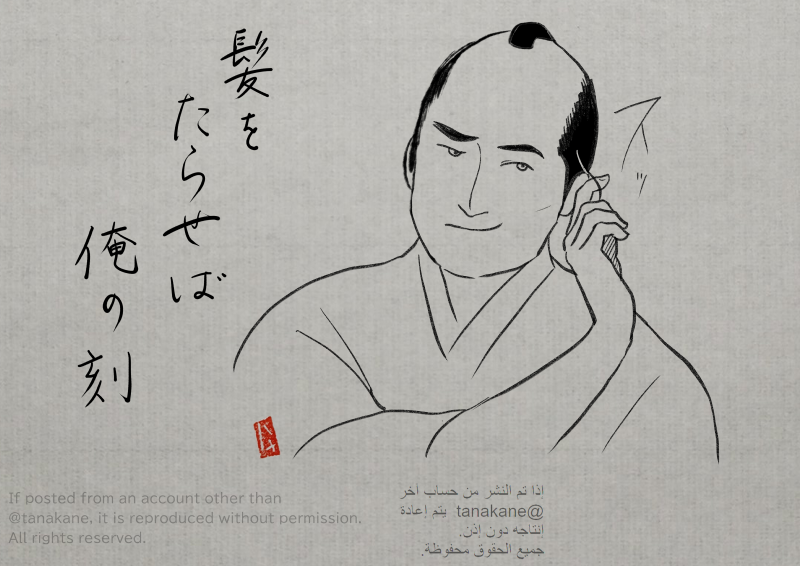 髪を
たらせば
俺の刻
ファッ
If posted from an account other than
@tanakane, it is reproduced without permission,
All rights reserved.
إذا تم النشر من حساب آخر
@tanakane يتم إعادة
إنتاجه دون إذن.
جميع الحقوق محفوظة.